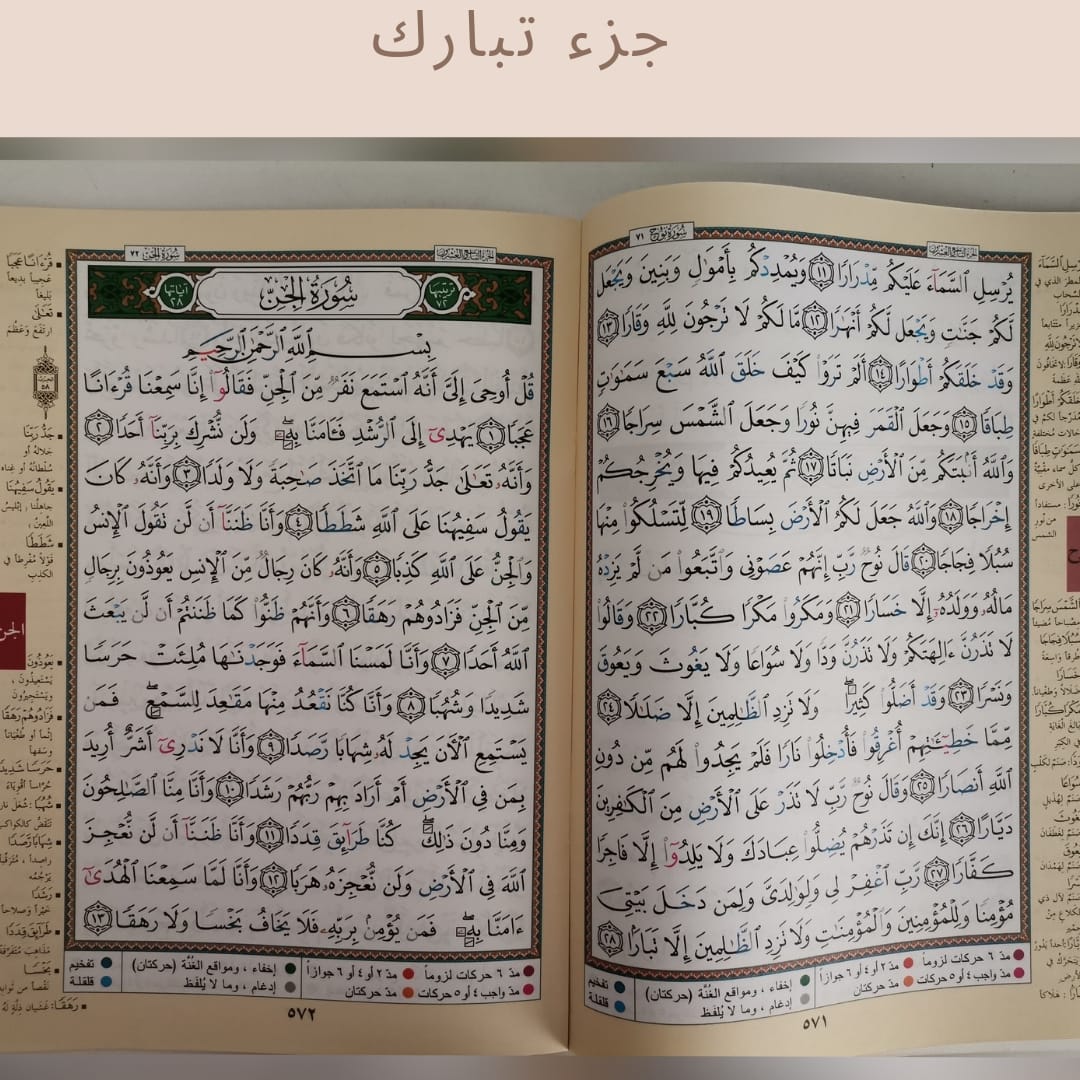 جزء تبارك
سورة نوح ٧١
يُرْسِلِ السَّمَآءَ عَلَيْكُم مِّدْرَارًا ١١ وَيُمْدِدْكُم بِأَمْوَٰلٍ وَبَنِينَ وَيَجْعَل
لَّكُمْ جَنَّٰتٍ وَيَجْعَل لَّكُمْ أَنْهَٰرًا ١٢ مَّا لَكُمْ لَا تَرْجُونَ لِلَّهِ وَقَارًا ١٣
وَقَدْ خَلَقَكُمْ أَطْوَارًا ١٤ أَلَمْ تَرَوْا۟ كَيْفَ خَلَقَ اللَّهُ سَبْعَ سَمَٰوَٰتٍ
طِبَاقًا ١٥ وَجَعَلَ الْقَمَرَ فِيهِنَّ نُورًا وَجَعَلَ الشَّمْسَ سِرَاجًا ١٦
وَاللَّهُ أَنۢبَتَكُم مِّنَ الْأَرْضِ نَبَاتًا ١٧ ثُمَّ يُعِيدُكُمْ فِيهَا وَيُخْرِجُكُمْ
إِخْرَاجًا ١٨ وَاللَّهُ جَعَلَ لَكُمُ الْأَرْضَ بِسَاطًا ١٩ لِّتَسْلُكُوا۟ مِنْهَا
سُبُلًا فِجَاجًا ٢٠ قَالَ نُوحٌ رَّبِّ إِنَّهُمْ عَصَوْنِى وَاتَّبَعُوا۟ مَن لَّمْ يَزِدْهُ
مَالُهُۥ وَوَلَدُهُۥٓ إِلَّا خَسَارًا ٢١ وَمَكَرُوا۟ مَكْرًا كُبَّارًا ٢٢ وَقَالُوا۟
لَا تَذَرُنَّ ءَالِهَتَكُمْ وَلَا تَذَرُنَّ وَدًّا وَلَا سُوَاعًا وَلَا يَغُوثَ وَيَعُوقَ
وَنَسْرًا ٢٣ وَقَدْ أَضَلُّوا۟ كَثِيرًا ۖ وَلَا تَزِدِ الظَّٰلِمِينَ إِلَّا ضَلَٰلًا ٢٤
مِّمَّا خَطِيٓـَٰٔتِهِمْ أُغْرِقُوا۟ فَأُدْخِلُوا۟ نَارًا فَلَمْ يَجِدُوا۟ لَهُم مِّن دُونِ
اللَّهِ أَنصَارًا ٢٥ وَقَالَ نُوحٌ رَّبِّ لَا تَذَرْ عَلَى الْأَرْضِ مِنَ الْكَٰفِرِينَ
دَيَّارًا ٢٦ إِنَّكَ إِن تَذَرْهُمْ يُضِلُّوا۟ عِبَادَكَ وَلَا يَلِدُوٓا۟ إِلَّا فَاجِرًا
كَفَّارًا ٢٧ رَّبِّ اغْفِرْ لِى وَلِوَٰلِدَىَّ وَلِمَن دَخَلَ بَيْتِىَ
مُؤْمِنًا وَلِلْمُؤْمِنِينَ وَالْمُؤْمِنَٰتِ وَلَا تَزِدِ الظَّٰلِمِينَ إِلَّا تَبَارًۢا ٢٨
مدّ ٦ حركات لزوماً مدّ ٢ أو ٤ أو ٦ جوازاً إخفاء ، ومواقع الغُنَّة (حركتان) تفخيم
مدّ واجب ٤ أو ٥ حركات مدّ حركتان إدغام ، وما لا يُلفَظ قلقلة
٥٧١
سورة الجن ٧٢
ترتيبها ٧٢ سُورَةُ الجِنِّ آياتها ٢٨
بِسْمِ اللَّهِ الرَّحْمَٰنِ الرَّحِيمِ
قُلْ أُوحِىَ إِلَىَّ أَنَّهُ اسْتَمَعَ نَفَرٌ مِّنَ الْجِنِّ فَقَالُوٓا۟ إِنَّا سَمِعْنَا قُرْءَانًا
عَجَبًا ١ يَهْدِىٓ إِلَى الرُّشْدِ فَـَٔامَنَّا بِهِۦ ۖ وَلَن نُّشْرِكَ بِرَبِّنَآ أَحَدًا ٢
وَأَنَّهُۥ تَعَٰلَىٰ جَدُّ رَبِّنَا مَا اتَّخَذَ صَٰحِبَةً وَلَا وَلَدًا ٣ وَأَنَّهُۥ كَانَ
يَقُولُ سَفِيهُنَا عَلَى اللَّهِ شَطَطًا ٤ وَأَنَّا ظَنَنَّآ أَن لَّن تَقُولَ الْإِنسُ
وَالْجِنُّ عَلَى اللَّهِ كَذِبًا ٥ وَأَنَّهُۥ كَانَ رِجَالٌ مِّنَ الْإِنسِ يَعُوذُونَ بِرِجَالٍ
مِّنَ الْجِنِّ فَزَادُوهُمْ رَهَقًا ٦ وَأَنَّهُمْ ظَنُّوا۟ كَمَا ظَنَنتُمْ أَن لَّن يَبْعَثَ
اللَّهُ أَحَدًا ٧ وَأَنَّا لَمَسْنَا السَّمَآءَ فَوَجَدْنَٰهَا مُلِئَتْ حَرَسًا
شَدِيدًا وَشُهُبًا ٨ وَأَنَّا كُنَّا نَقْعُدُ مِنْهَا مَقَٰعِدَ لِلسَّمْعِ ۖ فَمَن
يَسْتَمِعِ الْآنَ يَجِدْ لَهُۥ شِهَابًا رَّصَدًا ٩ وَأَنَّا لَا نَدْرِىٓ أَشَرٌّ أُرِيدَ
بِمَن فِى الْأَرْضِ أَمْ أَرَادَ بِهِمْ رَبُّهُمْ رَشَدًا ١٠ وَأَنَّا مِنَّا الصَّٰلِحُونَ
وَمِنَّا دُونَ ذَٰلِكَ ۖ كُنَّا طَرَآئِقَ قِدَدًا ١١ وَأَنَّا ظَنَنَّآ أَن لَّن نُّعْجِزَ
اللَّهَ فِى الْأَرْضِ وَلَن نُّعْجِزَهُۥ هَرَبًا ١٢ وَأَنَّا لَمَّا سَمِعْنَا الْهُدَىٰٓ
ءَامَنَّا بِهِۦ ۖ فَمَن يُؤْمِنۢ بِرَبِّهِۦ فَلَا يَخَافُ بَخْسًا وَلَا رَهَقًا ١٣
مدّ ٦ حركات لزوماً مدّ ٢ أو ٤ أو ٦ جوازاً إخفاء ، ومواقع الغُنَّة (حركتان) تفخيم
مدّ واجب ٤ أو ٥ حركات مدّ حركتان إدغام ، وما لا يُلفَظ قلقلة
٥٧٢
قُرْءَانًا عَجَبًا
عَجِيباً بَدِيعاً
بَلِيغاً
تَعَٰلَىٰ
ارتَفَعَ وَعَظُمَ
جَدُّ رَبِّنَا
جَلالُهُ أو
سُلْطَانُهُ أو غِناه
يَقُولُ سَفِيهُنَا
جاهِلُنا : إبليسُ
اللَّعِينُ
شَطَطًا
قَوْلاً مُفْرِطاً في
الكَذِب
الجن
يَعُوذُونَ
يَسْتَعِيذُونَ ،
ويَسْتَجِيرُون
فَزَادُوهُمْ رَهَقًا
إِثْماً أو طُغْيَاناً
وسَفَهاً
رَهَقًا: غَشَيان ذِلَّةٍ لَهُ